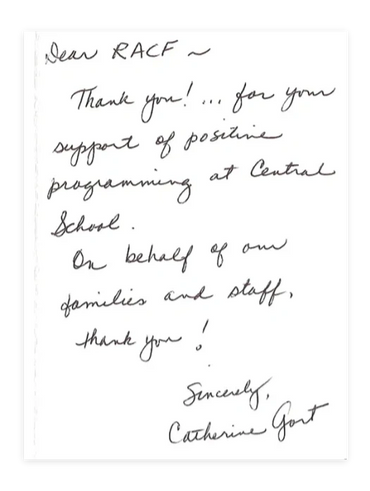 Dear RACF ~
Thank you! ... for your
support of positive
programming at Central
School.
On behalf of our
families and staff,
thank you!
Sincerely,
Catherine Gort